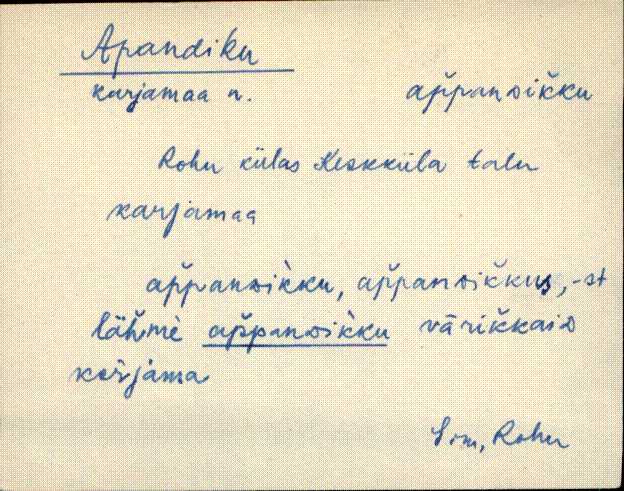 Apandiku
karjamaa n. ap̆panᴅik̆ku
Rohu külas Keskküla talu
karjamaa
ap̆panᴅik̀ku, ap̆panᴅik̆kus, -st
läh̆mè ap̆panᴅik̀ku vārik̆kaiᴅ
korjama
Sim, Rohu